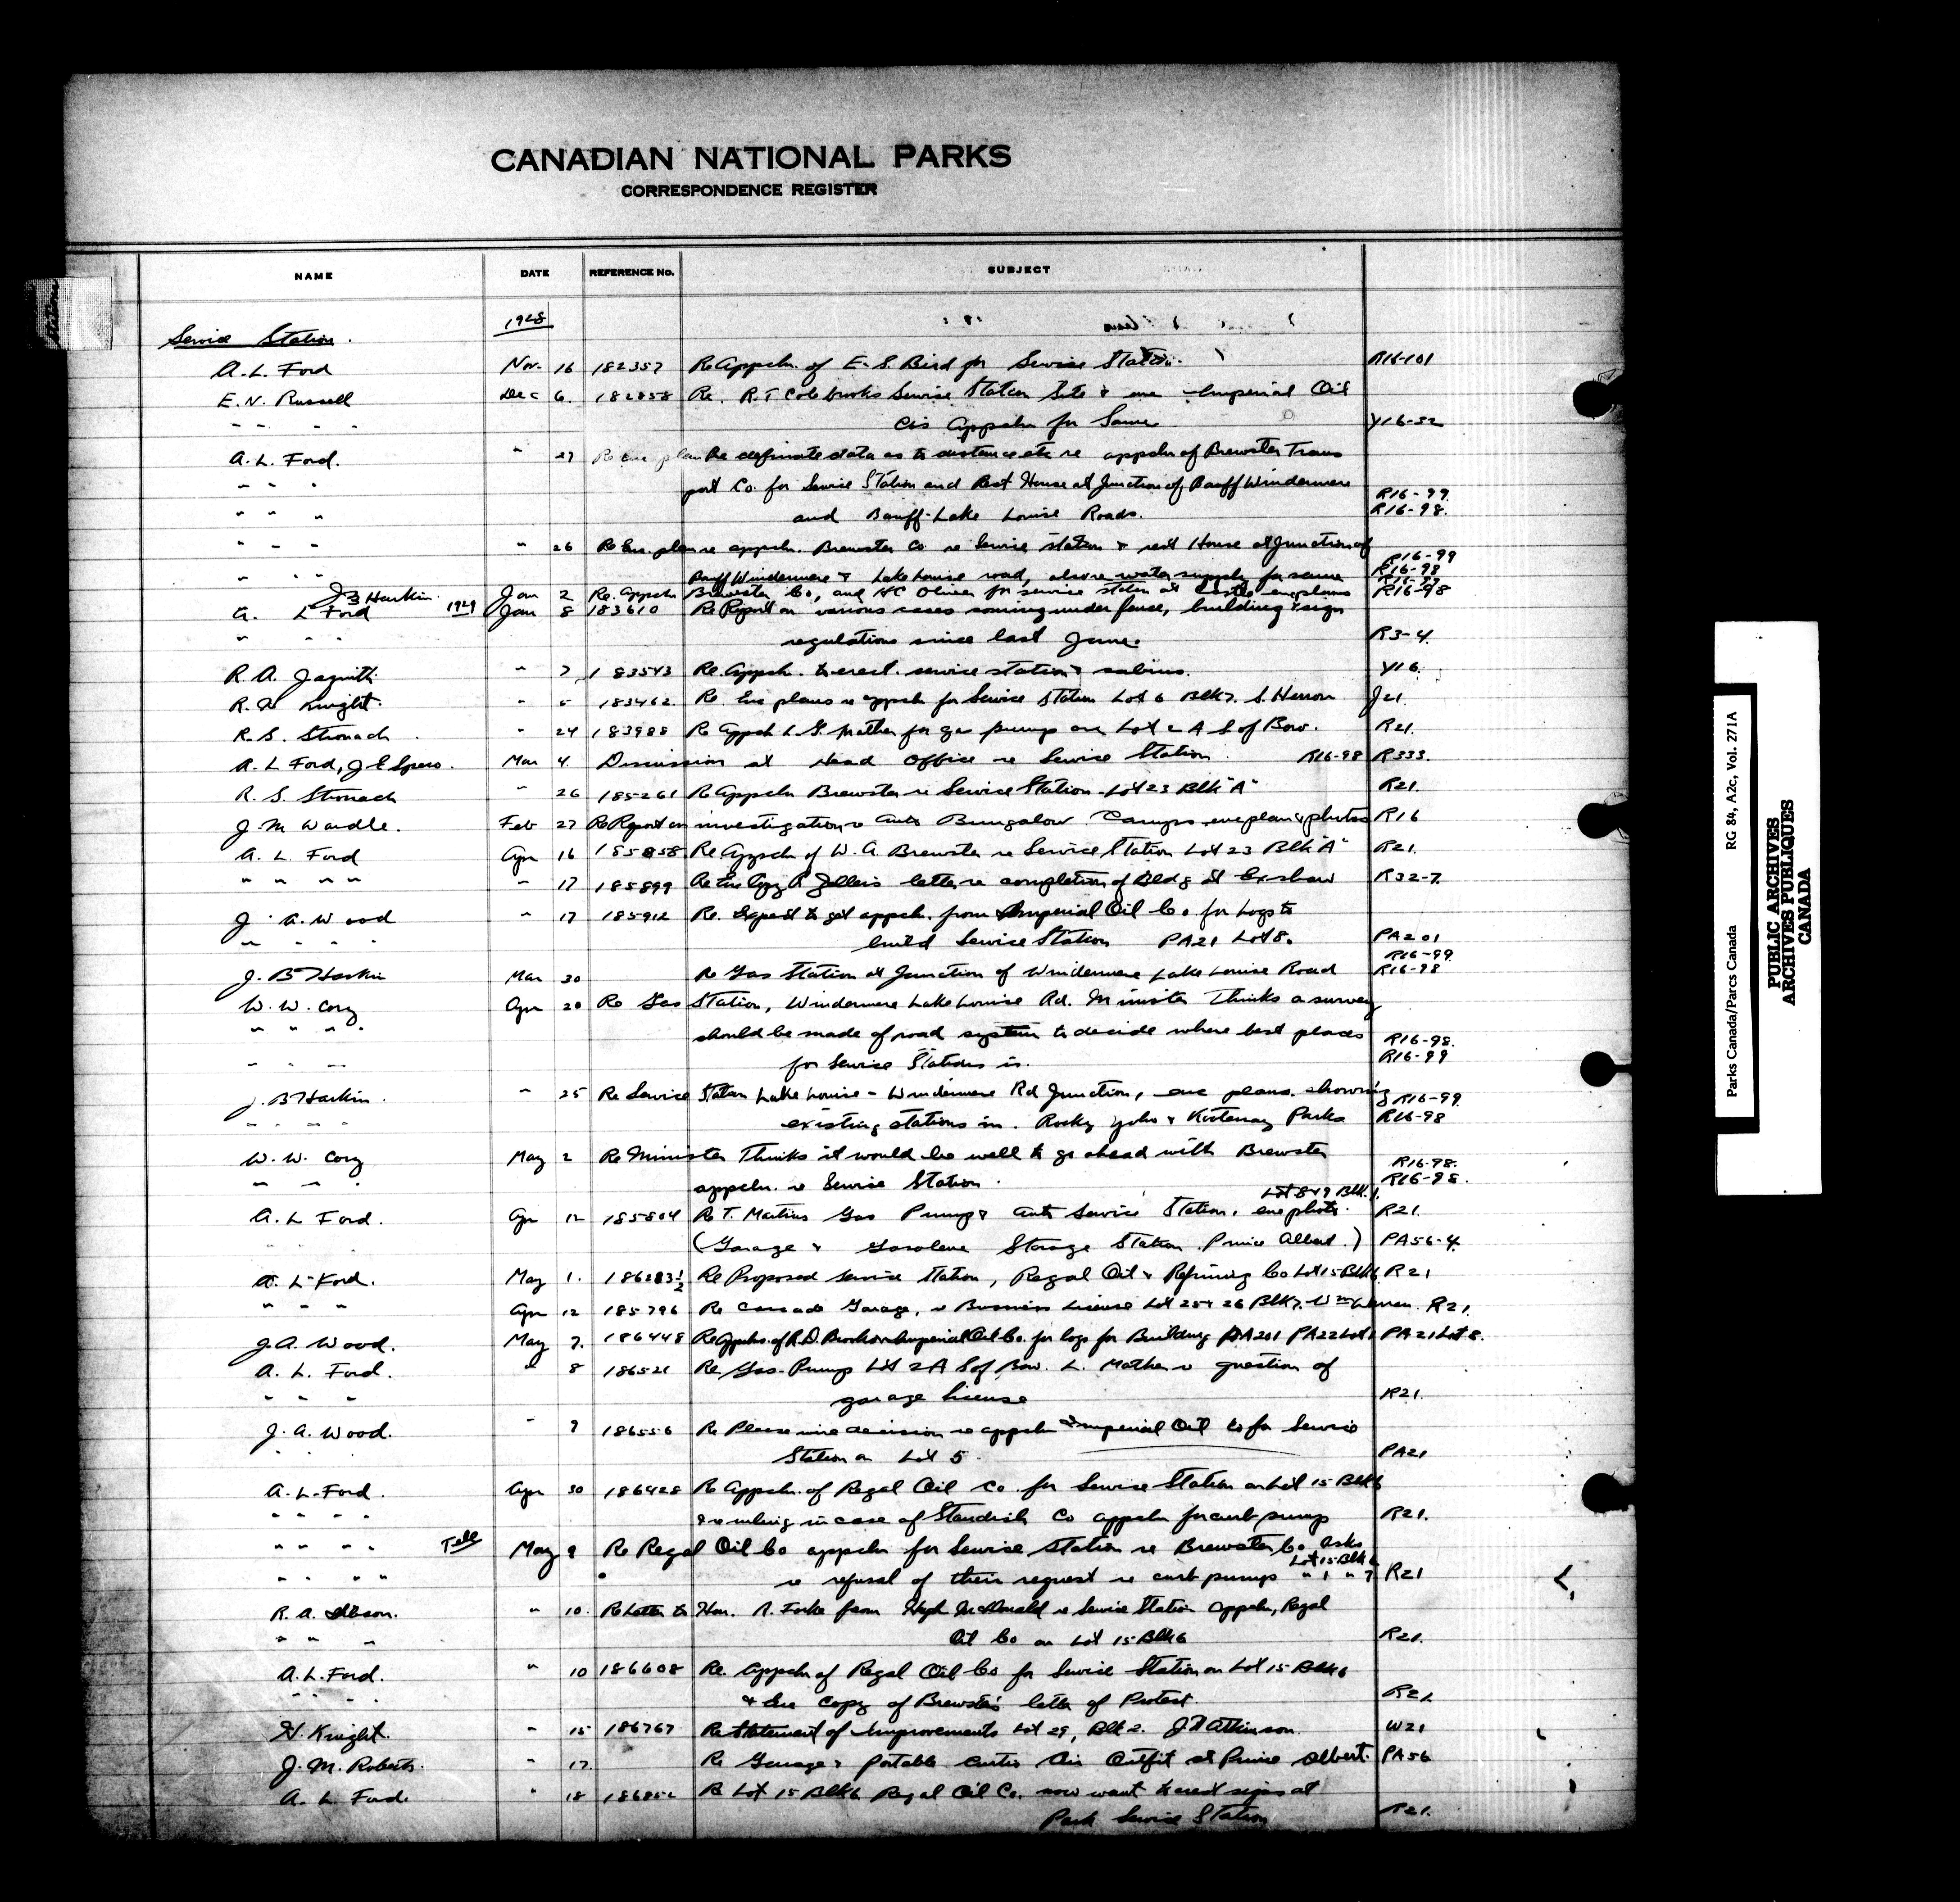 CANADIAN NATIONAL PARKS
CORRESPONDENCE REGISTER
NAME DATE REFERENCE No. SUBJECT
1928
Service Station.
A. L. Ford Nov. 16 182357 Re Appcln. of E. S. Bird for Service Station. R16-101
E. N. Russell Dec 6. 182858 Re. R. T Colebrooks Service Station Site & Imperial Oil
" " " " Co's Appcln for Same Y16-52
A. L. Ford. " 27 Re Enc plan re definate data as to distance etc re appcln of Brewster Trans
" " " port Co. for Service Station and Rest House at Junction of Banff Windermere R16-99
" " " and Banff-Lake Louise Roads. R16-98.
" " " " 26 Re Enc. plan re appcln. Brewster Co re Service Station & rest House at Junction of R16-99
" " " Banff Windermere & Lake Louise road, also re water supply for same R16-98
J B Harkin. Jan 2 Re. Appcln Brewster Co, and H C Oliver for service station at Castle enc plans R16-98
A. L Ford 1929 Jan 8 183610 Re Report on various cases coming under fence, building & sign
" " " regulations since last June. R3-4.
R. A. " 7 183543 Re. Appcln. to erect service station & cabins. Y16.
R. Knight. " 5 183462. Re. Enc plans re appcln for Service Station Lot 6 Blk 7. S. Herron J21.
R. S. Stronach " 24 183988 Re Appcln L. G. Mather for gas pump on Lot 2 A S of Bow. R21.
A. L Ford, J E Spero. Mar 4. Discussion at Head Office re Service Station. R16-98 R333.
R. S. Stronach " 26 185261 Re Appcln Brewster re Service Station - Lot 23 Blk "A" R21.
J. M Wardle. Feb 27 Re Report on investigation re Auto Bungalow Camps enc plan & photos R16
A. L. Ford Apr 16 185858 Re Appcln of W. A. Brewster re Service Station Lot 23 Blk "A" R21.
" " " " " 17 185899 Re Enc Copy letter re completion of Bldg at Exshaw R32-7.
J. A. Wood " 17 185912 Re. Expect to get appcln. from Imperial Oil Co. for Logs to
" " " " build Service Station PA21 Lot 8. PA201
J. B Harkin Mar 30 Re Gas Station at Junction of Windermere Lake Louise Road R16-99 R16-98
W. W. Cory Apr 20 Re Gas Station, Windermere Lake Louise Rd. Minister Thinks a survey
" " " " should be made of road system to decide where best places R16-98.
" " " for Service Stations is. R16-99
J. B Harkin. " 25 Re Service Station Lake Louise - Windermere Rd Junction, enc plans. showing R16-99.
" " " " existing stations in. Rocky Yoho & Kootenay Parks R16-98
W. W. Cory May 2 Re Minister Thinks it would be well to go ahead with Brewster R16-98.
" " " appcln. re Service Station. R16-98.
Lot 8 & 9 Blk. 1.
A. L Ford. Apr 12 185804 Re T. Martins Gas Pump & Auto Service Station. enc photo. R21.
(Garage & Gasolene Storage Station. Prince Albert.) PA56-4.
A. L. Ford. May 1. 186283½ Re Proposed service station, Regal Oil & Refining Co Lot 15 Blk 6 R21
" " " Apr 12 185796 Re Cascade Garage, re Business License Lot 25 & 26 Blk 7. Wm Warren. R21.
J. A. Wood. May 7. 186448 Re Appclns. of Imperial Oil Co. for logs for Building PA201 PA22 Lot 1 PA21 Lot 8.
A. L. Ford. " 8 186521 Re Gas Pump Lot 2 A S of Bow. L. Mather re question of
" " " garage license R21.
J. A. Wood. " 7 186556 Re Please wire decision re appcln Imperial Oil Co for Service
Station on Lot 5. PA21
A. L. Ford. Apr 30 186428 Re Appcln. of Regal Oil Co. for Service Station on Lot 15 Blk 6
" " " " & re ruling in case of Standish Co appcln for curb pump R21.
" " " " Tele May 9 Re Regal Oil Co appcln for Service Station re Brewster Co. Asks Lot 15 Blk 6
" " " " re refusal of their request re curb pumps " 1 " 7 R21
R. A. Gibson. " 10. Re Letter to Hon. R. Forke from Hugh McDonald re Service Station Appcln, Regal
" " " Oil Co on Lot 15 Blk 6 R21.
A. L. Ford. " 10 186608 Re. Appcln of Regal Oil Co for Service Station on Lot 15 Blk 6
" " " & Enc Copy of Brewster's letter of Protest. R21
H. Knight. " 15 186767 Re Statement of Improvements Lot 29, Blk 2. Atkinson. W21
J. M. Roberts. " 17. Re Garage & Portable Air Outfit at Prince Albert. PA56
A. L. Ford. " 18 Re Lot 15 Blk 6 Regal Oil Co. now want to erect signs at
Park Service Station R21.
Parks Canada/Parcs Canada RG 84, A2c, Vol. 271A
PUBLIC ARCHIVES
ARCHIVES PUBLIQUES
CANADA